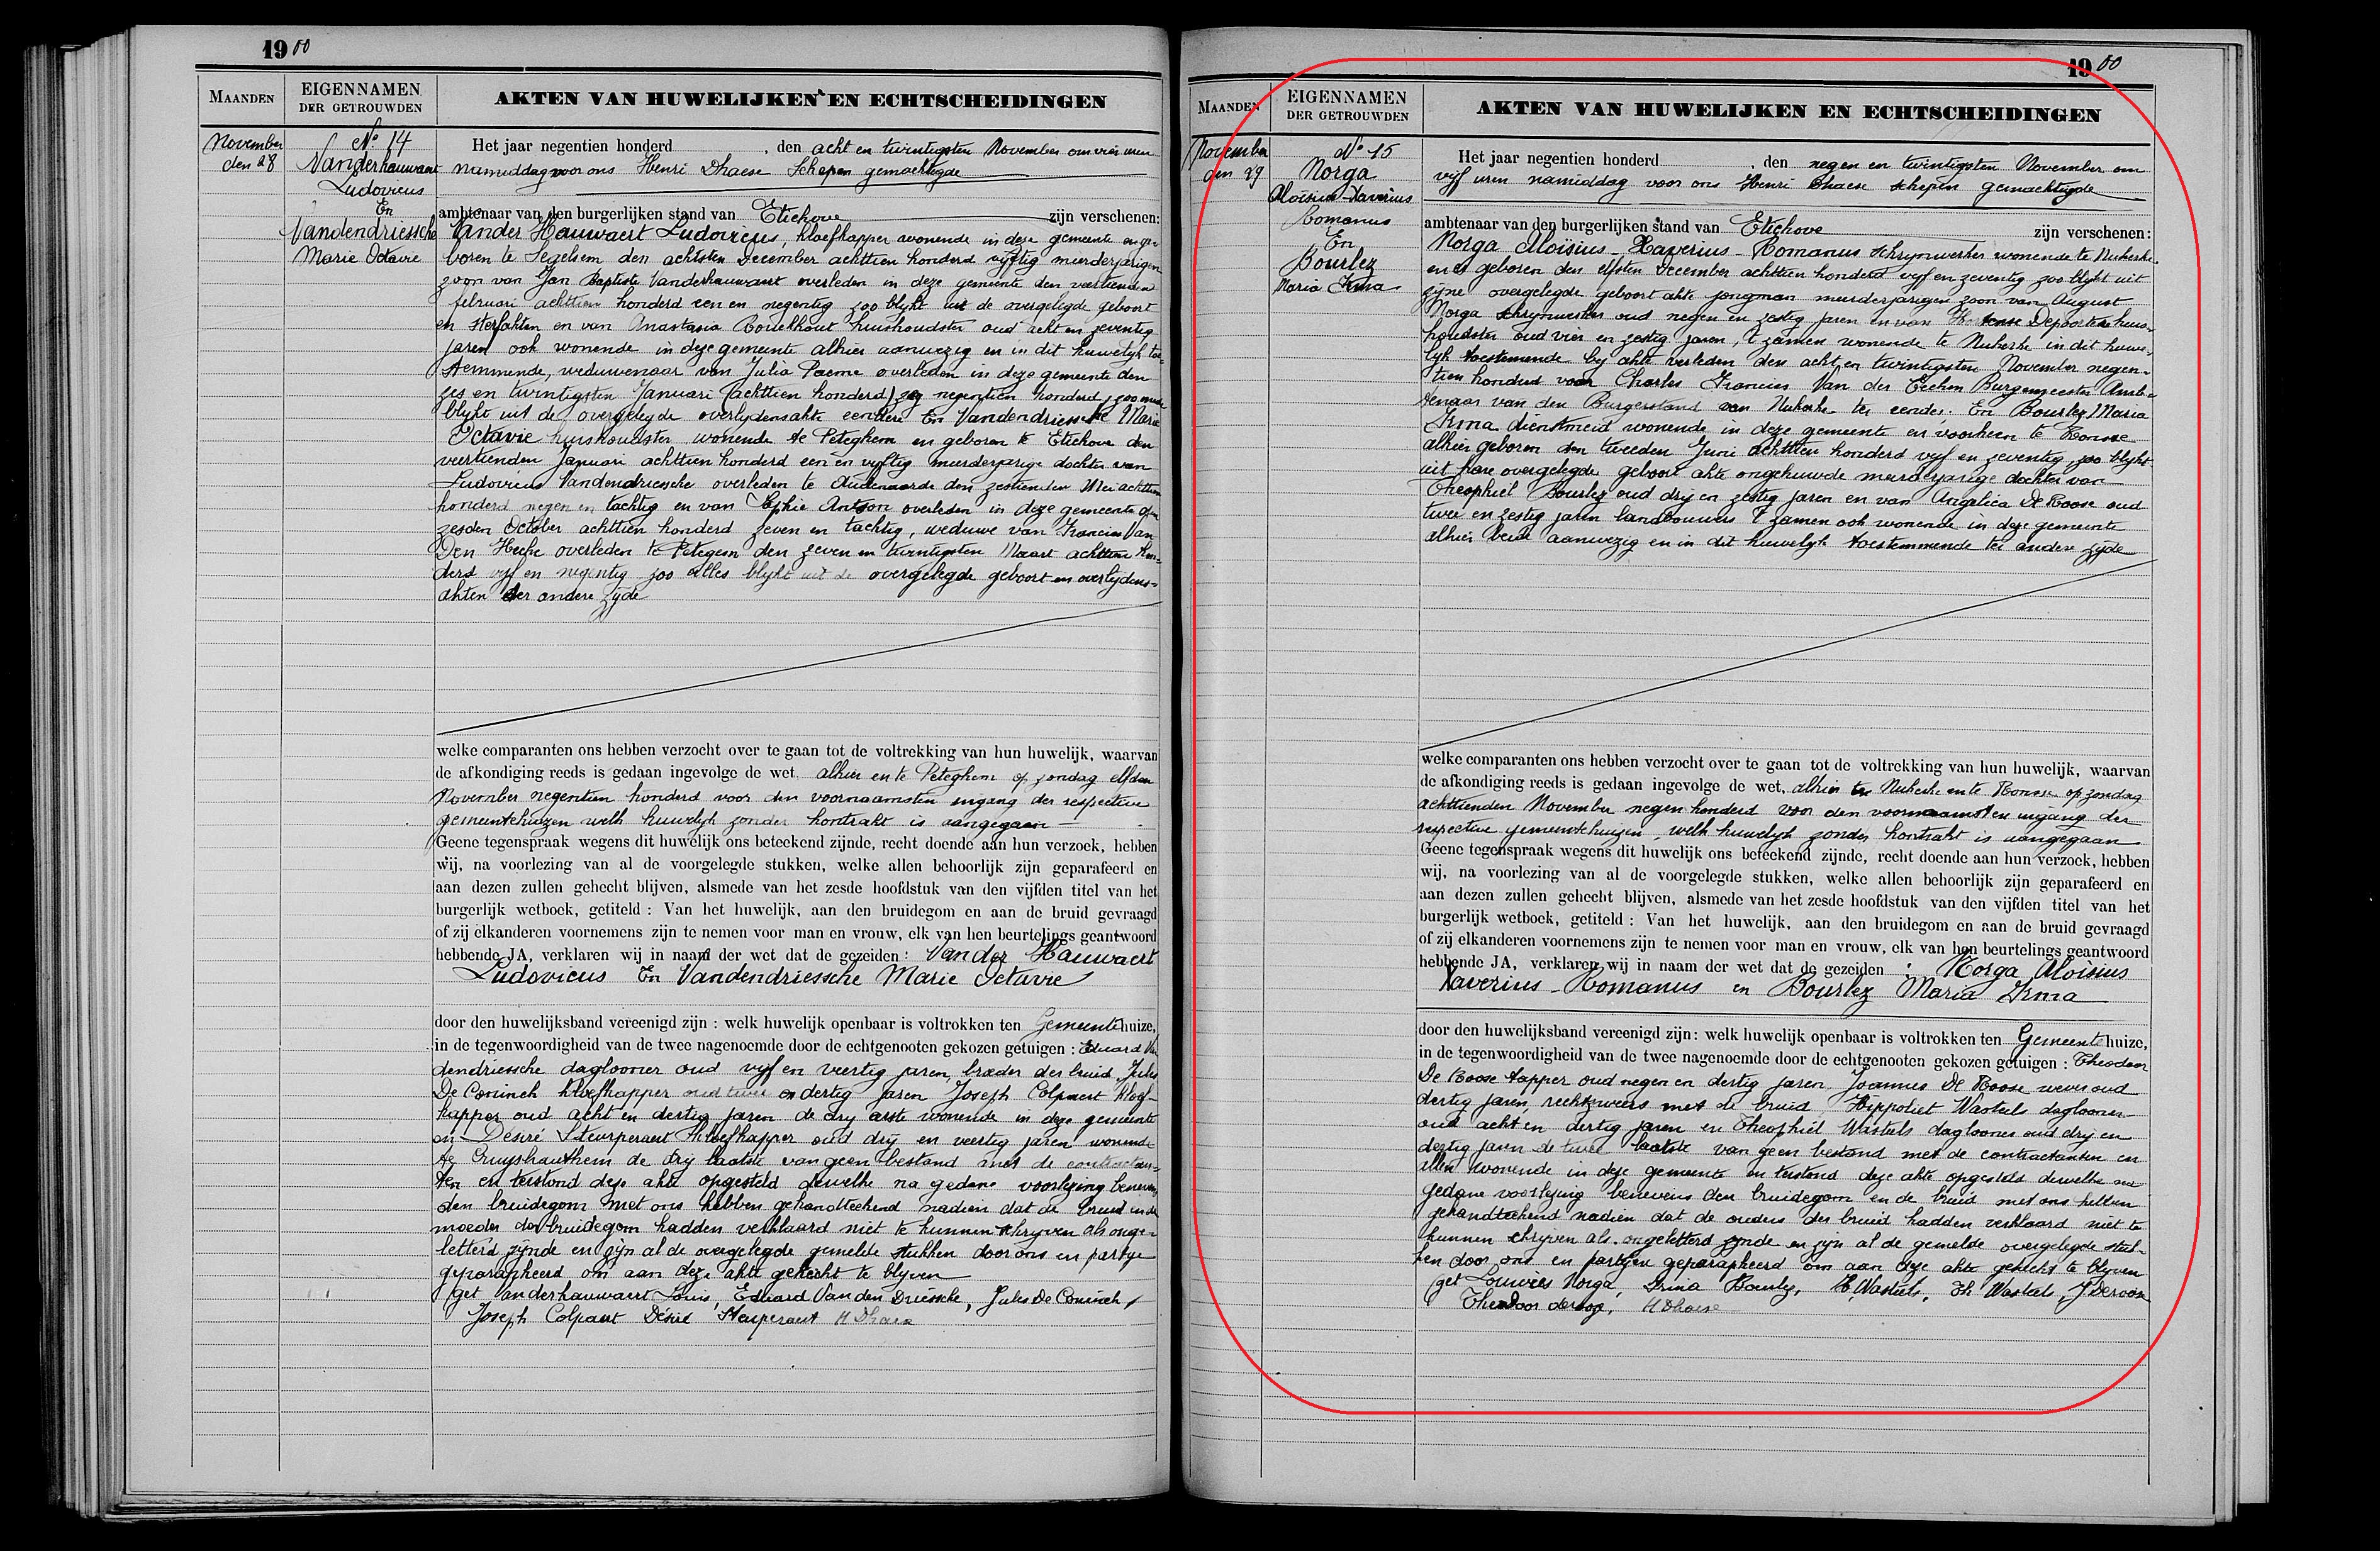 1900
MAANDEN
EIGENNAMEN
DER GETROUWDEN
AKTEN VAN HUWELIJKEN EN ECHTSCHEIDINGEN
November
den 28
No 14
Vanderhauwaert
Ludovicus
En
Vandendriessche
Marie Octavie
Het jaar negentien honderd , den acht en twintigsten November om vier uren
namiddag voor ons Henri Dhaese Schepen gemachtigde
ambtenaar van den burgerlijken stand van Etichove zijn verschenen:
Vander Hauwaert Ludovicus, kloefkapper wonende in deze gemeente en ge-
boren te Segelsem den achtsten December achttien honderd vijftig meerderjarigen
zoon van Jan Baptiste Vanderhauwaert overleden in deze gemeente den
februari achttien honderd een en negentig zoo blijkt uit de overgelegde geboort
en sterfakten en van Anastasia huishoudster oud acht en zeventig
jaren ook wonende in deze gemeente alhier aanwezig en in dit huwelijk toe-
stemmende, weduwenaar van Julia Paeme overleden in deze gemeente den
zes en twintigsten Januari (achttien honderd) negentien honderd, zoo mede
blijkt uit de overgelegde overlijdensakte eendere En Vandendriessche Marie
Octavie huishoudster wonende te Peteghem en geboren te Etichove den
veertienden Januari achttien honderd een en vijftig meerderjarige dochter van
Ludovicus Vandendriessche overleden te Audenaarde den zestienden Mei achttien
honderd negen en tachtig en van Sophie overleden in deze gemeente den
zesden October achttien honderd zeven en tachtig, weduwe van Francies Van
Den Heeke overleden te Petegem den zeven en twintigsten Maart achttien hon-
derd vijf en negentig zoo alles blijkt uit de overgelegde geboort en overlijdens-
akten ter andere zijde
welke comparanten ons hebben verzocht over te gaan tot de voltrekking van hun huwelijk, waarvan
de afkondiging reeds is gedaan ingevolge de wet, alhier en te Peteghem op zondag elfden
November negentien honderd voor den voornaamsten ingang der respectieve
gemeentehuizen welk huwelijk zonder kontrakt is aangegaan
Geene tegenspraak wegens dit huwelijk ons beteekend zijnde, recht doende aan hun verzoek, hebben
wij, na voorlezing van al de voorgelegde stukken, welke allen behoorlijk zijn geparafeerd en
aan dezen zullen gehecht blijven, alsmede van het zesde hoofdstuk van den vijfden titel van het
burgerlijk wetboek, getiteld : Van het huwelijk, aan den bruidegom en aan de bruid gevraagd
of zij elkanderen voornemens zijn te nemen voor man en vrouw, elk van hen beurtelings geantwoord
hebbende JA, verklaren wij in naam der wet dat de gezeiden : Vander Hauwaert
Ludovicus En Vandendriessche Marie Octavie
door den huwelijksband vereenigd zijn : welk huwelijk openbaar is voltrokken ten Gemeentehuize,
in de tegenwoordigheid van de twee nagenoemde door de echtgenooten gekozen getuigen : Eduard Van
dendriessche daglooner oud vijf en veertig jaren, broeder der bruid Jules
De Coninck kloefkapper oud twee en dertig jaren Joseph Colpaert kloef-
kapper oud acht en dertig jaren de dry eerste wonende in deze gemeente
en Désiré Steurperaert kloefkapper oud dry en veertig jaren wonende
te Cruyshauthem de dry laatste van geen bestand met de contractan-
ten en terstond deze akte opgesteld dewelke na gedane voorlezing benevens
den bruidegom met ons hebben gehandteekend nadien dat de bruid en de
moeder der bruidegom hadden verklaard niet te kunnen schrijven als onge-
letterd zijnde en zijn al de overgelegde gemelde stukken door ons en partije
geparapheerd om aan deze akte gehecht te blijven
get Vanderhauwaert Louis, Eduard Van den Driessche, Jules De Coninck,
Joseph Colpaert Désiré Steurperaert H Dhaese
1900
MAANDEN
EIGENNAMEN
DER GETROUWDEN
AKTEN VAN HUWELIJKEN EN ECHTSCHEIDINGEN
November
den 29
No 15
Norga
Aloïsius-Xaverius
Romanus
En
Bourlez
Maria Irma
Het jaar negentien honderd , den negen en twintigsten November om
vijf uren namiddag voor ons Henri Dhaese schepen gemachtigde
ambtenaar van den burgerlijken stand van Etichove zijn verschenen:
Norga Aloïsius-Xaverius-Romanus schrijnwerker wonende te Nukerke
en er geboren den elfsten December achttien honderd vijf en zeventig zoo blijkt uit
zijne overgelegde geboort akte jongman meerderjarigen zoon van August
Norga schrijnwerker oud negen en zestig jaren en van Hortense Depoortere huis-
houdster oud vier en zestig jaren, t zamen wonende te Nukerke in dit huwe-
lijk toestemmende bij akte verleden den acht en twintigsten November negen-
tien honderd voor Charles Francies Van der Eecken Burgemeester Ambt-
denaar van den Burgerstand van Nukerke ter eender. En Bourlez Maria
Irma dienstmeid wonende in deze gemeente en voorheen te Ronse
alhier geboren den tweeden Juni achttien honderd vijf en zeventig, zoo blijkt
uit hare overgelegde geboort akte ongehuwde meerderjarige dochter van
Theophiel Bourlez oud drij en zestig jaren en van Angelica De Roose oud
twee en zestig jaren landbouwers t zamen ook wonende in deze gemeente
alhier beide aanwezig en in dit huwelijk toestemmende ter andere zijde
welke comparanten ons hebben verzocht over te gaan tot de voltrekking van hun huwelijk, waarvan
de afkondiging reeds is gedaan ingevolge de wet, alhier te Nukerke en te Ronse op zondag
achttienden November negen honderd voor den voornaamsten ingang der
respectieve gemeentehuizen welk huwelijk zonder kontrakt is aangegaan
Geene tegenspraak wegens dit huwelijk ons beteekend zijnde, recht doende aan hun verzoek, hebben
wij, na voorlezing van al de voorgelegde stukken, welke allen behoorlijk zijn geparafeerd en
aan dezen zullen gehecht blijven, alsmede van het zesde hoofdstuk van den vijfden titel van het
burgerlijk wetboek, getiteld : Van het huwelijk, aan den bruidegom en aan de bruid gevraagd
of zij elkanderen voornemens zijn te nemen voor man en vrouw, elk van hen beurtelings geantwoord
hebbende JA, verklaren wij in naam der wet dat de gezeiden : Norga Aloïsius
Xaverius-Romanus en Bourlez Maria Irma
door den huwelijksband vereenigd zijn: welk huwelijk openbaar is voltrokken ten Gemeentehuize,
in de tegenwoordigheid van de twee nagenoemde door de echtgenooten gekozen getuigen : Theodoor
De Roose tapper oud negen en dertig jaren Joannes De Roose wever oud
dertig jaren, rechtzweers met de bruid Hippoliet Wasteels daglooner
oud acht en dertig jaren en Theophiel Wasteels daglooner oud drij en
dertig jaren de twee laatste van geen bestand met de contractanten en
allen wonende in deze gemeente en terstond deze akte opgesteld dewelke na
gedane voorlezing benevens den bruidegom en de bruid met ons hebben
gehandteekend nadien dat de ouders der bruid hadden verklaard niet te
kunnen schrijven als ongeletterd zijnde en zijn al de gemelde overgelegde stuk-
ken door ons en partijen geparapheerd om aan deze akte gehecht te blijven
get Louwies Norga, Irma Bourlez, H. Wasteels, Th Wasteels, J Deroose
Theodoor deroose, H Dhaese